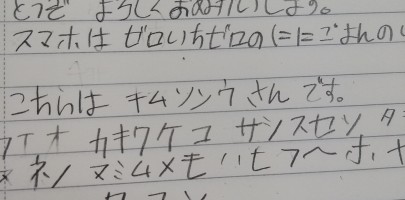 どうぞ よろしく おねがいします。
スマホは ゼロいちゼロの にーにごまんの
こちらは キムソンウさん です。
アイオ カキクケコ サシスセソ タ
ネノ ヌミムメモ ハヒフヘホ ヤ